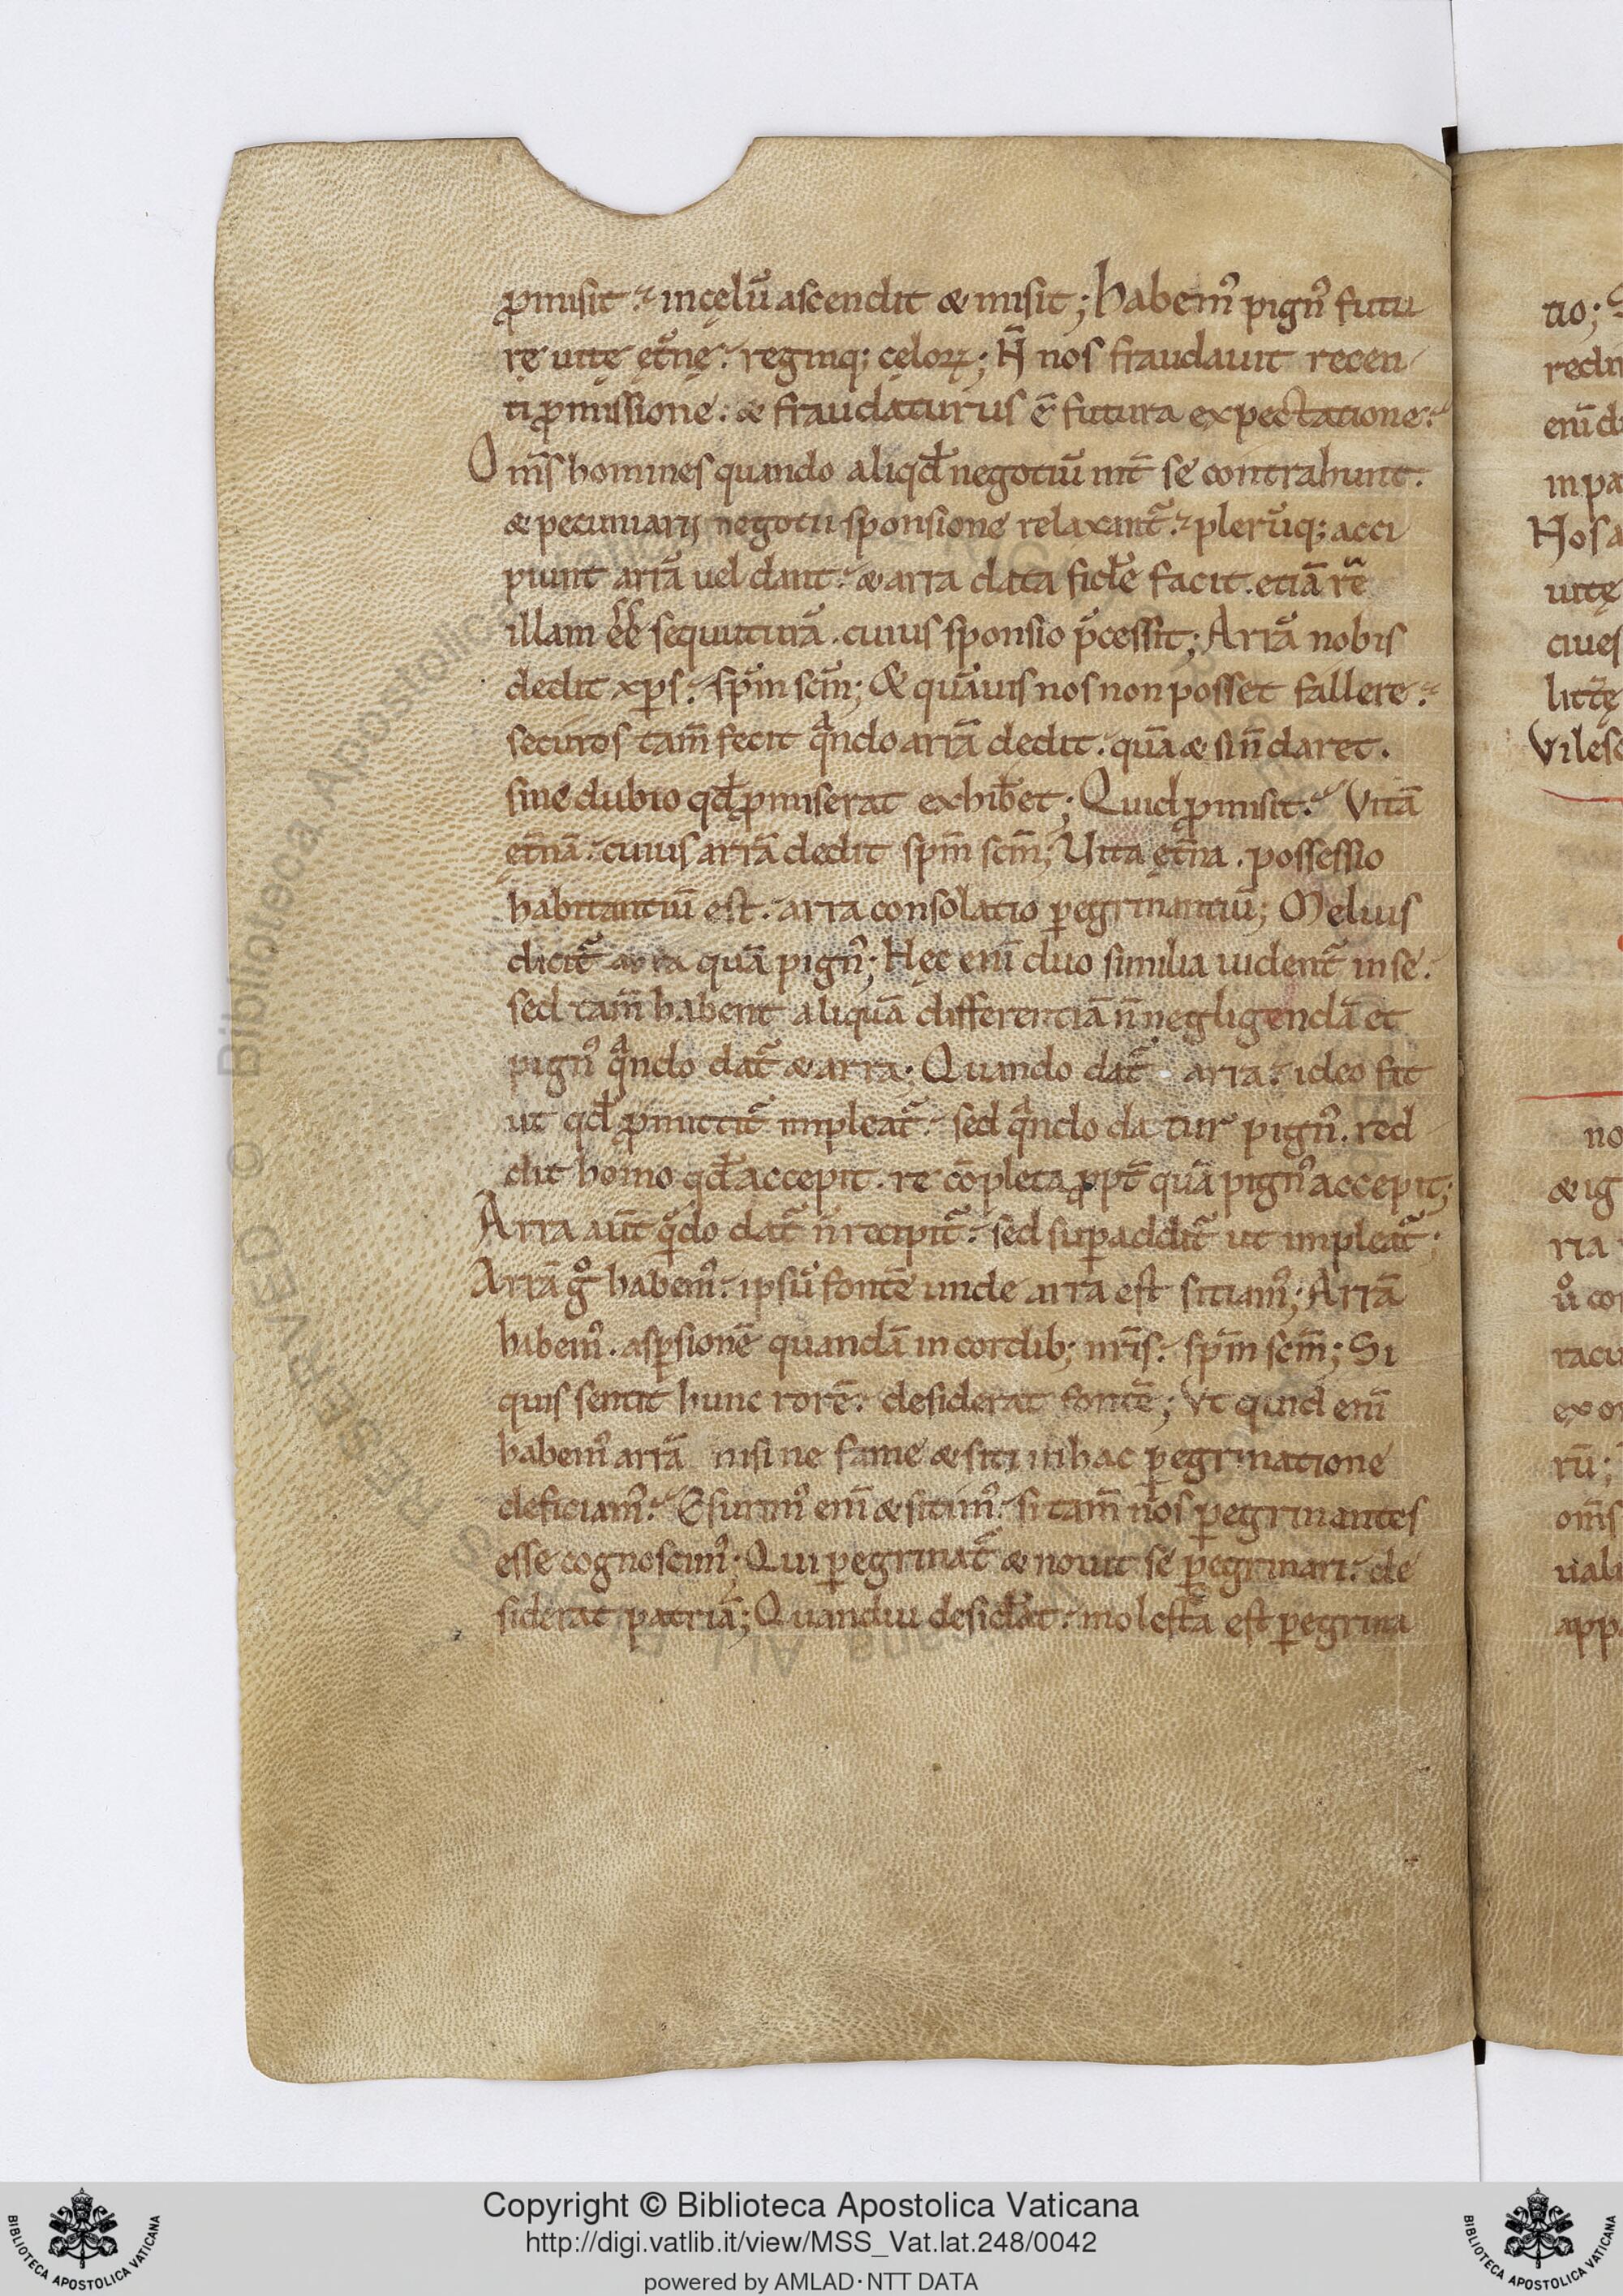 ꝓmisit · in cęlū ascendit & misit; Habem᷒ pign᷒ futu
rę uitę ęt̄nę · regniq; cęloꝝ; N̄ nos fraudauit recen
ti ꝓmissione · & fraudaturus ē futura expectatione ·
Om̄s homines quando aliqd̄ negotiū int̄ se contrahunt ·
& pecuniarij negotii sponsione relaxant᷑ · plerūq; acci
piunt arrā uel dant · & arra data fidē facit · etiā rē
illam ēē sequuturā · cuius sponsio p̄cessit; Arrā nobis
dedit xp̄s · sp̄m sc̄m; & quāuis nos non posset fallere ·
securos tam̄ fecit qͣndo arrā dedit · quā & si n̄ daret ·
sine dubio qd̄ ꝓmiserat exhib̄et; Quid ꝓmisit · Vitā
ęt̄nā · cuius arrā dedit sp̄m sc̄m; Uita ęt̄na · possessio
habitantiū est · arra consolatio ꝑegrinantiū; Melius
dicit᷑ arra quā pign᷒; Hęc enī duo similia uident᷑ in se ·
sed tam̄ habent aliquā differentiā n̄ negligendā et
pign᷒ qͣndo dat᷑ & arra; Quando dat᷑ arra · ideo fit
ut qd̄ ꝓmittit᷑ impleat᷑ · sed qͣndo datur pign᷒ · red
dit homo qd̄ accepit · re cōpleta ꝓpt̄ quā pign᷒ accepit;
Arra aut̄ qͣdo dat᷑ n̄ recipit᷑ · sed suꝑaddit᷑ ut impleat᷑ ·
Arrā gͦ habem᷒ · ipsū fontē unde arra est sitiam᷒; Arrā
habem᷒ · asꝑsionē quandā in cordib; nr̄is · sp̄m sc̄m; Si
quis sentit hunc rorē · desiderat fontē; Vt quid enī
habem᷒ arrā nisi ne fame & siti in hac ꝑegrinatione
deficiam᷒ · Esurim᷒ enī & sitim᷒ · si tam̄ nos ꝑegrinantes
esse cognoscim᷒; Qui ꝑegrinat᷑ & nouit se ꝑegrinari · de
siderat patriā; Quandiu desid̄at · molesta est ꝑegrina
tio;
redi
enī d
in pa
Nos a
uitę
ciues
litt̄ę
Viles
no
& ig
ria
uͦ co
racu
ex o
rū;
om̄s
uale
app
© Biblioteca Apostolica Vaticana ALL RIGHTS RESERVED
Copyright © Biblioteca Apostolica Vaticana
http://digi.vatlib.it/view/MSS_Vat.lat.248/0042
powered by AMLAD·NTT DATA
BIBLIOTECA APOSTOLICA VATICANA
BIBLIOTECA APOSTOLICA VATICANA